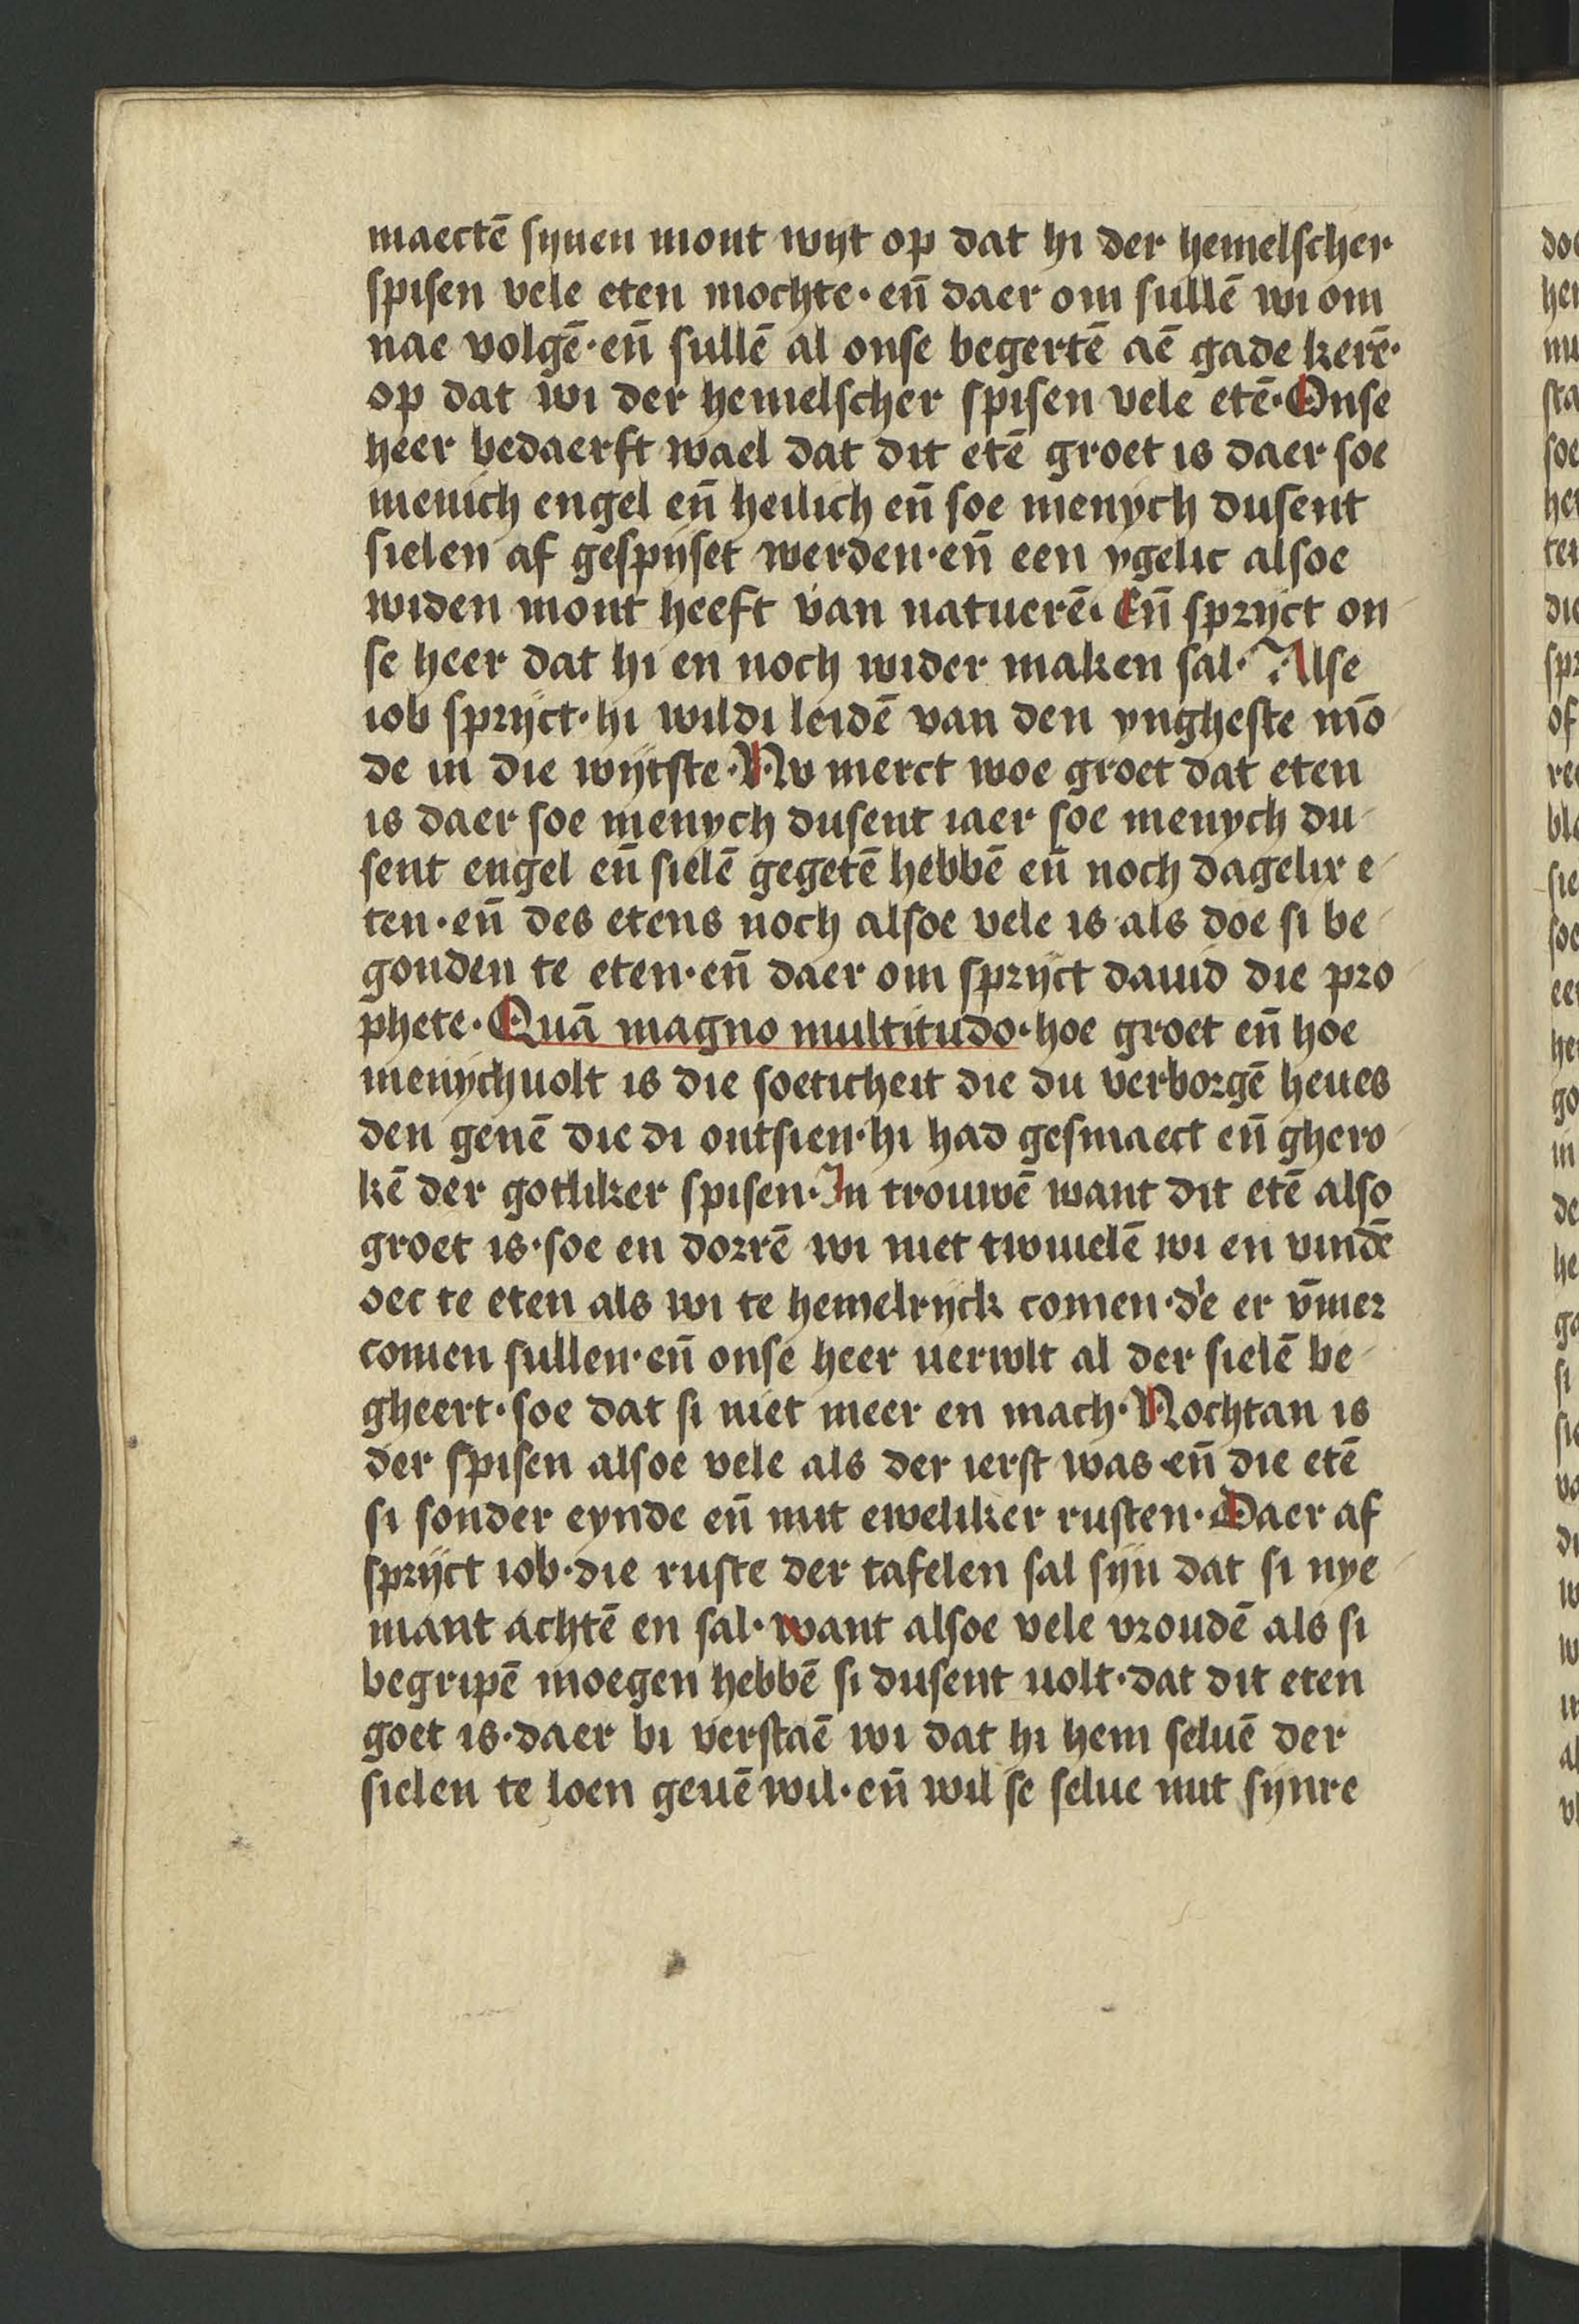 maectē synen mont wyt op dat hi der hemelscher
spisen vele eten mochte · en̄ daer om sullē wi om
nae volgē · en̄ sullē al onse begertē aē gade kerē ·
op dat wi der hemelscher spisen vele etē · Onse
heer bedaerft wael dat dit etē groet is daer soe
menich engel en̄ heilich en̄ soe menych dusent
sielen af gespyset werden · en̄ een ygelic alsoe
widen mont heeft van natuerē · En̄ spryct on
se heer dat hi en noch wider maken sal · Alse
iob spryct · hi wildi leidē van den yngheste mō
de in die wytste · Nv merct woe groet dat eten
is daer soe menych dusent iaer soe menych du
sent engel en̄ sielē gegetē hebbē en̄ noch dagelix e
ten · en̄ des etens noch alsoe vele is als doe si be
gonden te eten · en̄ daer om spryct dauid die pro
phete · Quā magno multitudo · hoe groet en̄ hoe
menychuolt is die soeticheit die du verborgē heues
den genē die di ontsien · hi had gesmaect en̄ ghero
kē der gotliker spisen · In trouwē want dit etē also
groet is · soe en dorrē wi niet twiuelē wi en vindē
oec te eten als wi te hemelryck comen · d'e er v̄mer
comen sullen · en̄ onse heer uervvlt al der sielē be
gheert · soe dat si niet meer en mach · Nochtan is
der spisen alsoe vele als der ierst was en̄ die etē
si sonder eynde en̄ mit eweliker rusten · Daer af
spryct iob · die ruste der tafelen sal syn dat si nye
mant achtē en sal · want alsoe vele vroudē als si
begripē moegen hebbē si dusent uolt · dat dit eten
goet is · daer bi verstaē wi dat hi hem seluē der
sielen te loen geuē wil · en̄ wil se selue mit synre